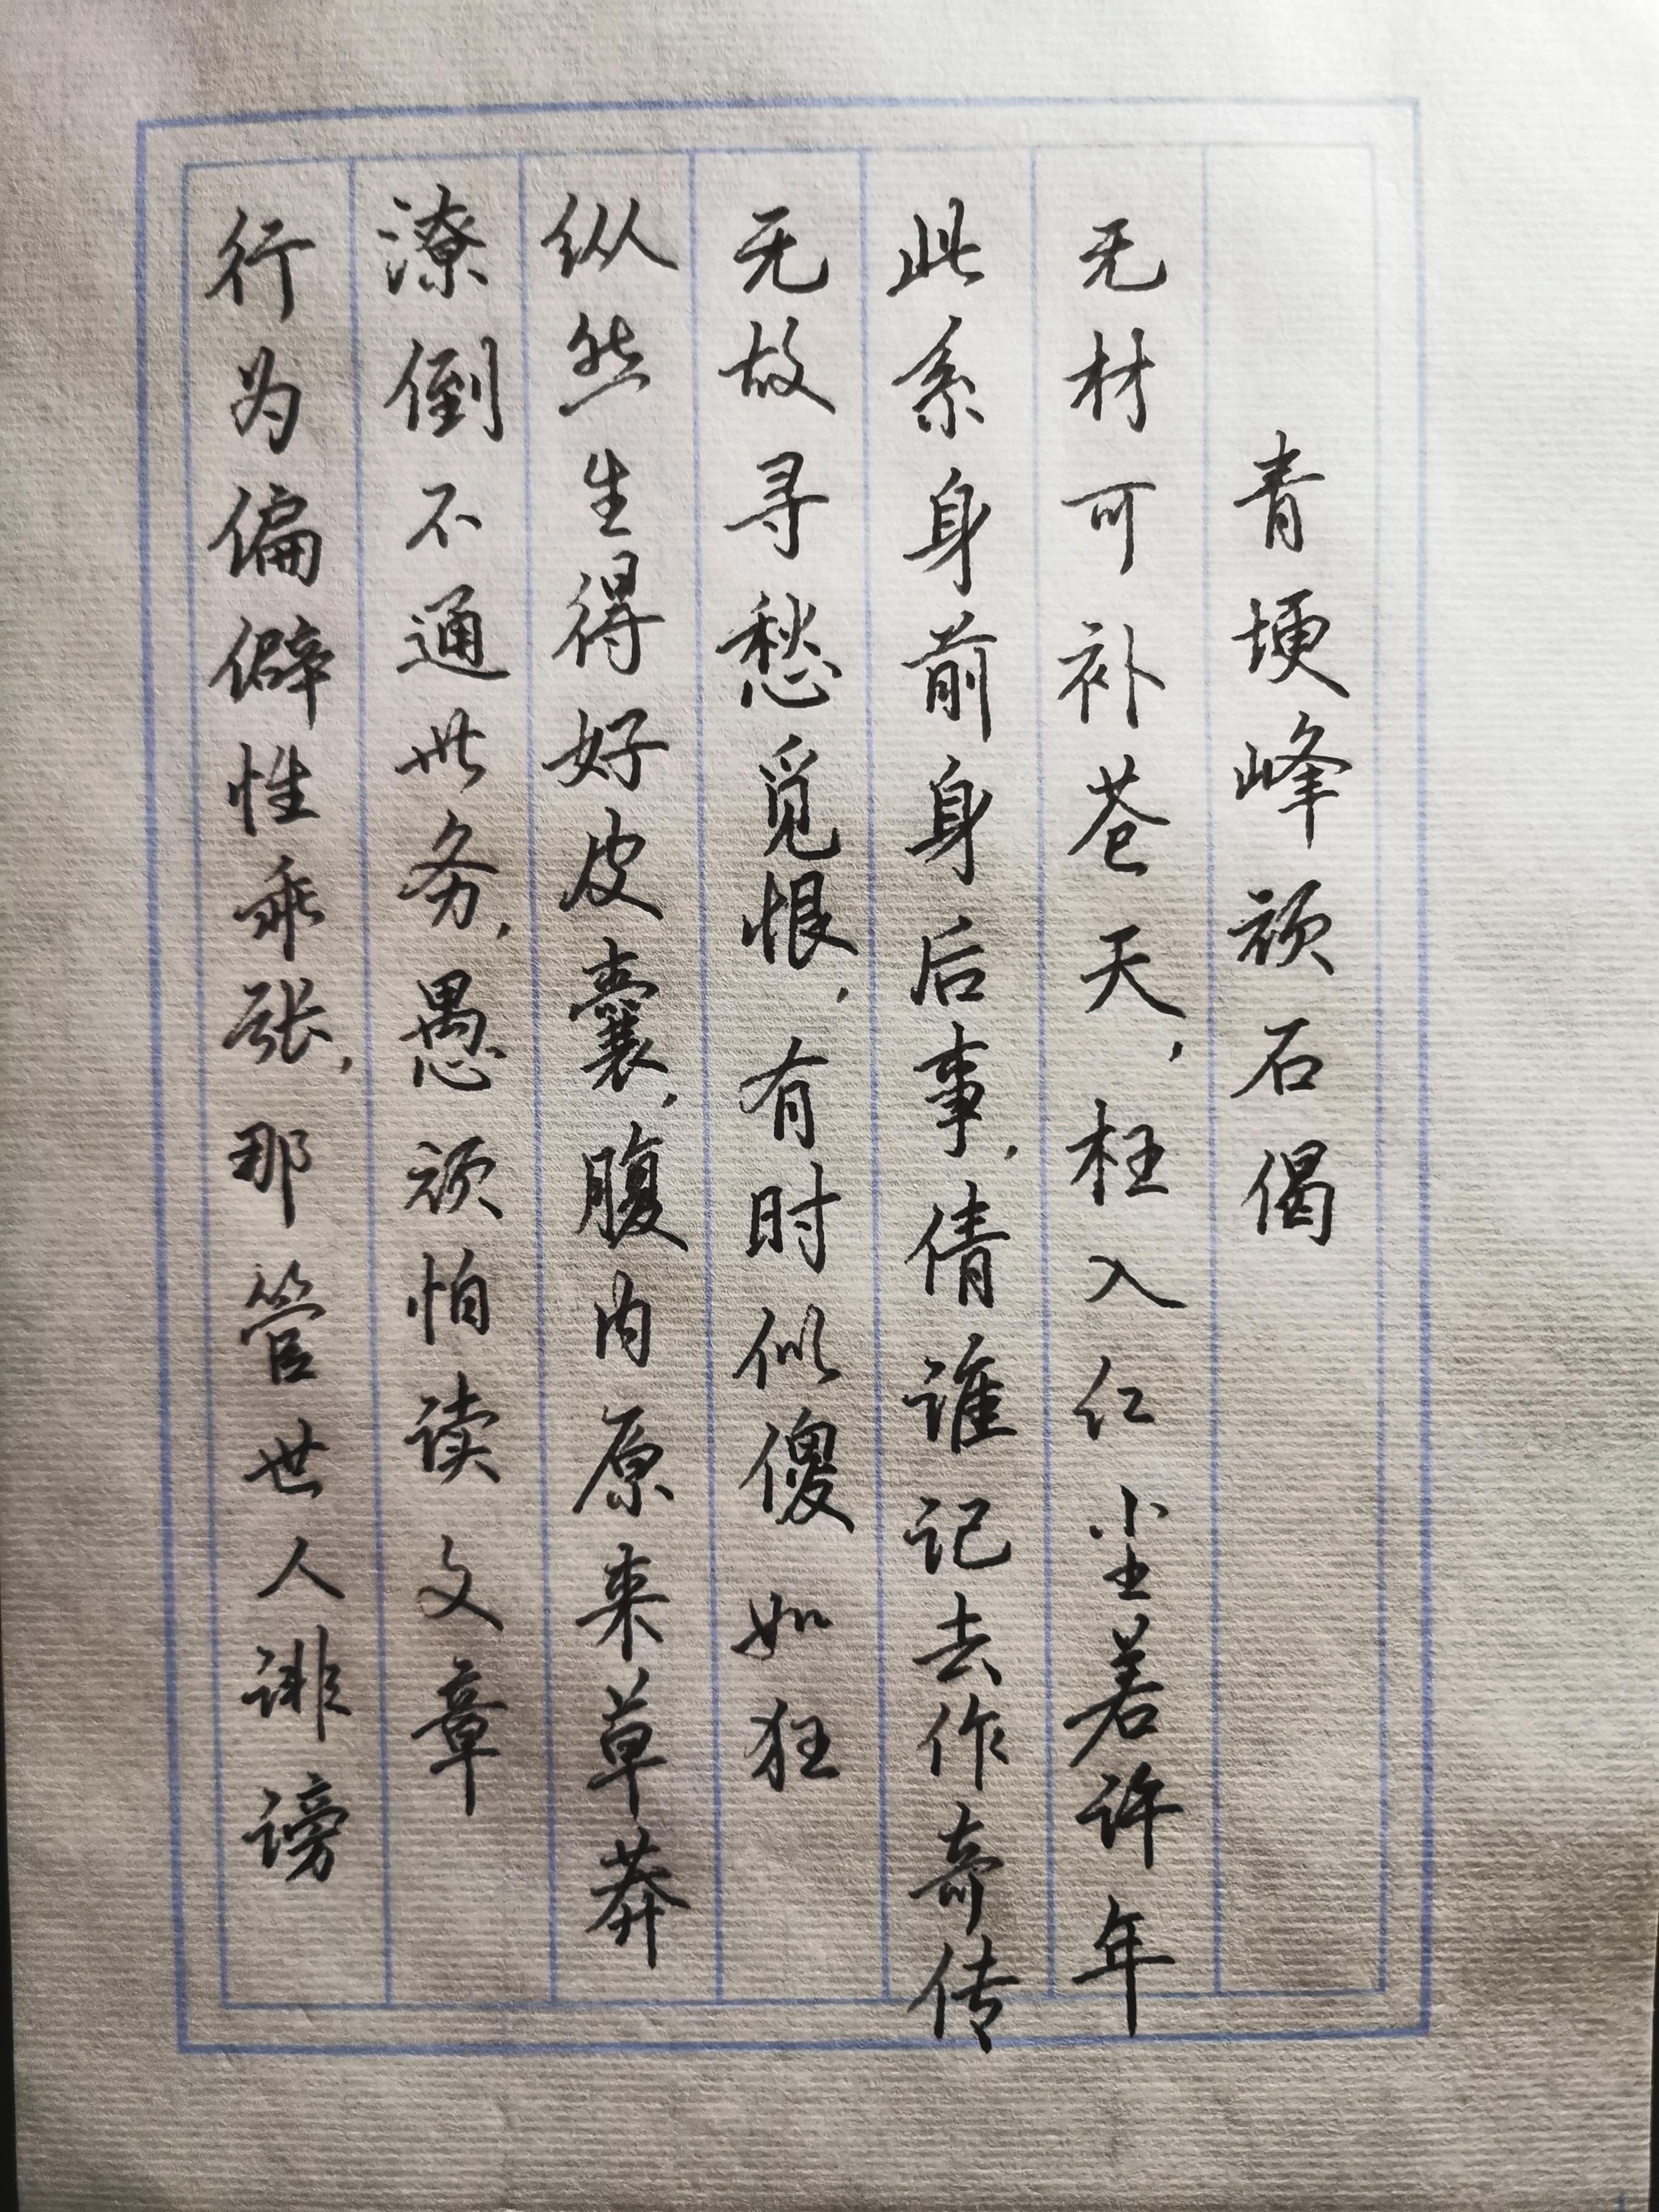 青埂峰顽石偈
无材可补苍天，枉入红尘若许年
此系身前身后事，倩谁记去作奇传
无故寻愁觅恨，有时似傻如狂
纵然生得好皮囊，腹内原来草莽
潦倒不通世务，愚顽怕读文章
行为偏僻性乖张，那管世人诽谤